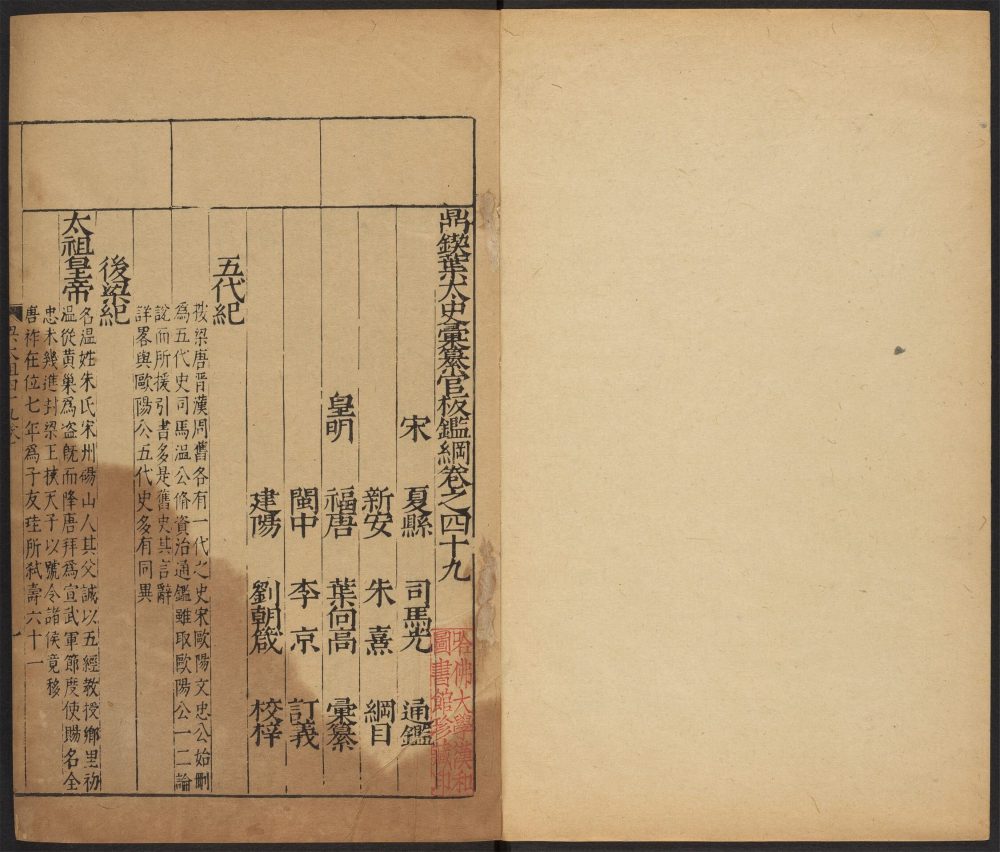 鼎鍥葉太史彙纂官板鑑綱卷之四十九
宋 夏縣 司馬光 通鑑
新安 朱熹 綱目
皇明 福唐 葉向高 彙纂
閩中 李京 訂義
建陽 劉朝箴 校梓
五代紀
按梁唐晋漢周舊各有一代之史宋歐陽文忠公始刪
為五代史司馬温公脩資治通鑑雖取歐陽公一二論
說而所援引書多是舊史其言辭
詳畧與歐陽公五代史多有同異
後梁紀
太祖皇帝
名温姓朱氏宋州碭山人其父誠以五經教授鄉里初
温從黄巢為盗旣而降唐拜為宣武軍節度使賜名全
忠未幾進封梁王挾天子以號令諸侯竟移
唐祚在位七年為子友珪所弒壽六十一
哈佛大學漢和
圖書館珍藏印